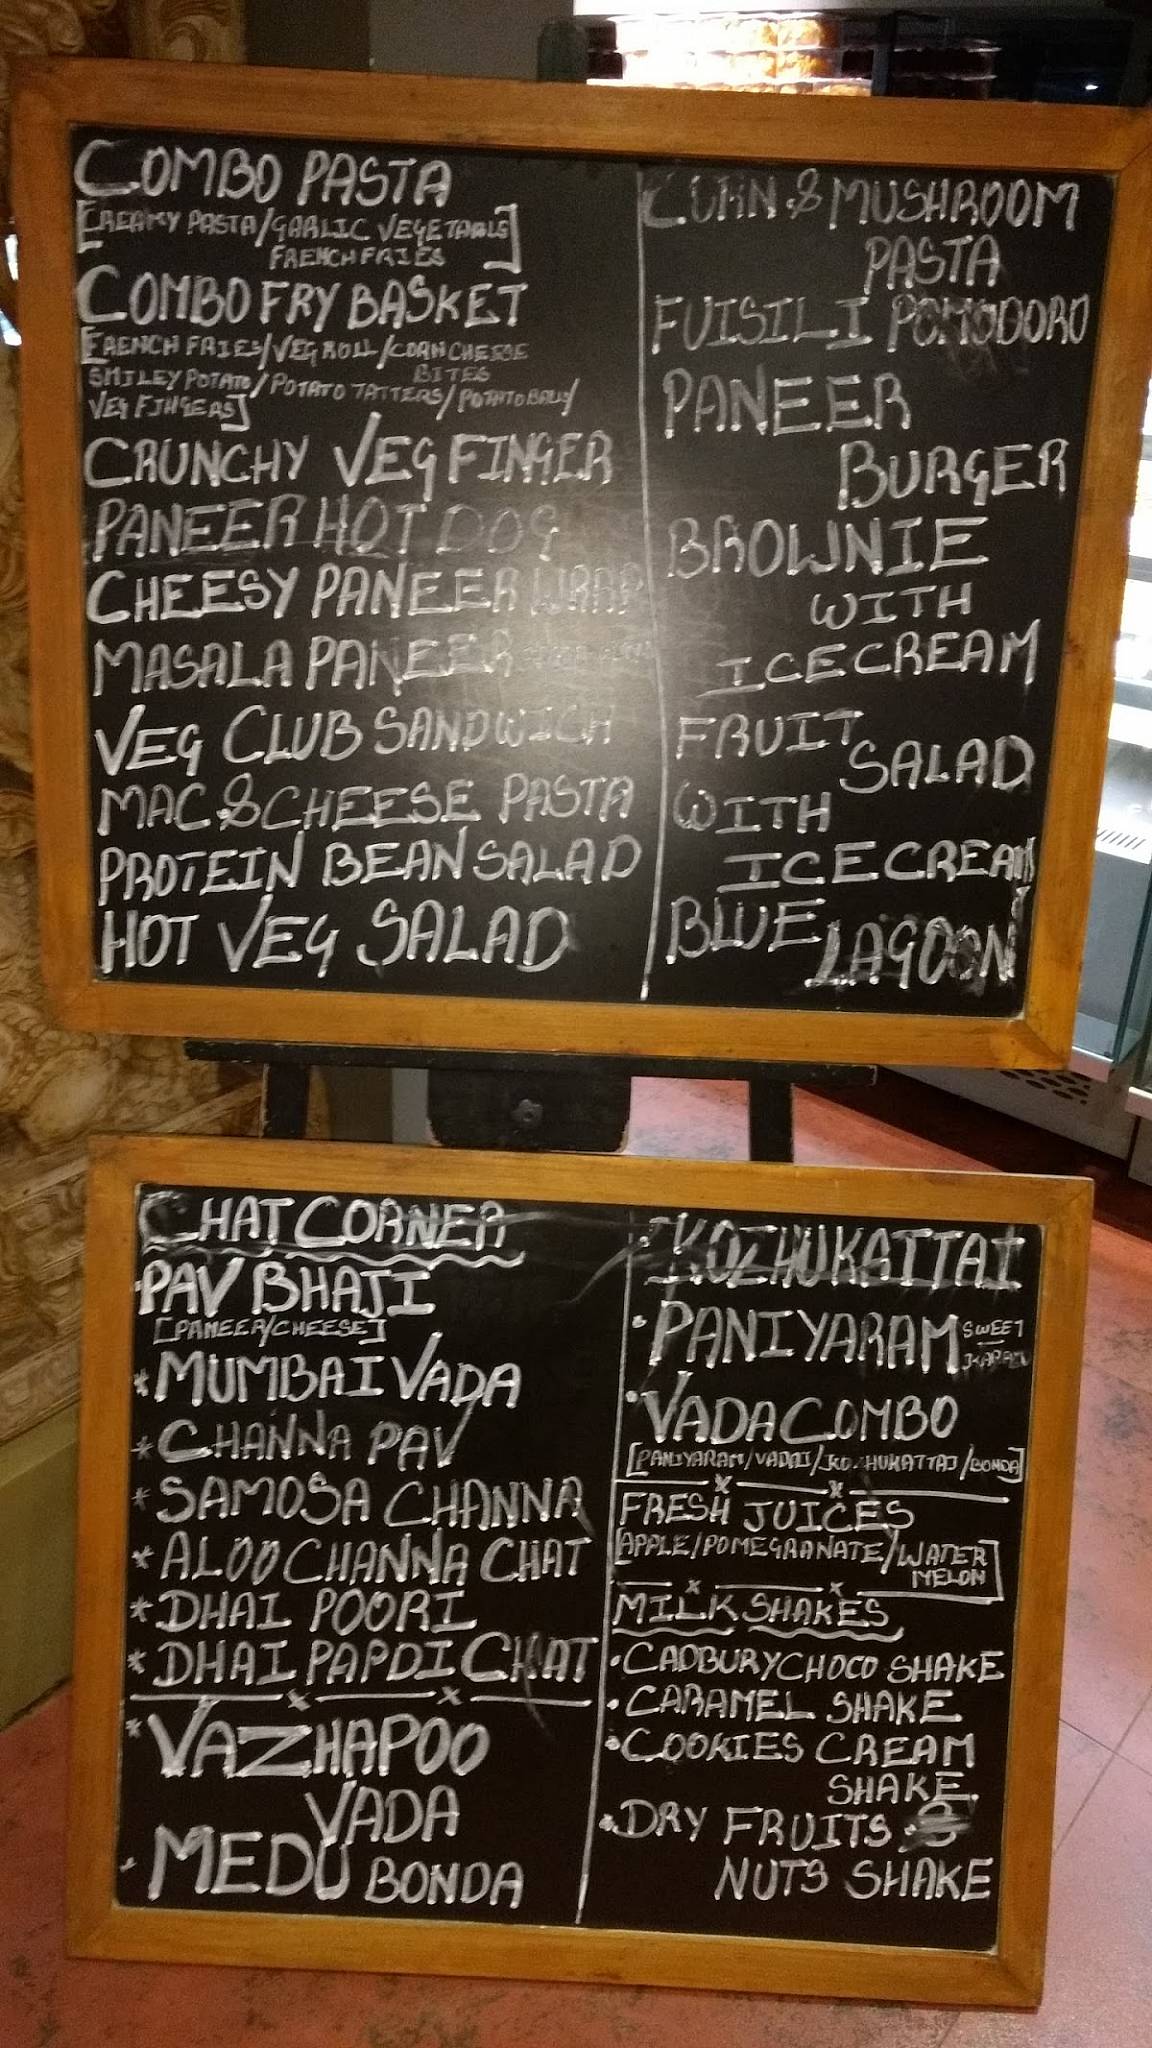 COMBO PASTA
[CREAMY PASTA/GARLIC VEGETABLE]
FRENCH FRIES
COMBO FRY BASKET
[FRENCH FRIES/VEG ROLL/CORN CHEESE
BITES
SMILEY POTATO/POTATO TATTERS/POTATO BALLS/
VEG FINGERS]
CRUNCHY VEG FINGER
PANEER HOT DOG
CHEESY PANEER WRAP
MASALA PANEER
VEG CLUB SANDWICH
MAC & CHEESE PASTA
PROTEIN BEAN SALAD
HOT VEG SALAD
CORN & MUSHROOM
PASTA
FUISILI POMODORO
PANEER
BURGER
BROWNIE
WITH
ICECREAM
FRUIT
SALAD
WITH
ICECREAM
BLUE
LAGOON
CHAT CORNER
PAV BHAJI
[PANEER/CHEESE]
* MUMBAI VADA
* CHANNA PAV
* SAMOSA CHANNA
* ALOO CHANNA CHAT
* DHAI POORI
* DHAI PAPDI CHAT
* VAZHAPOO
VADA
• MEDU BONDA
• KOZHUKATTAI
• PANIYARAM SWEET
KARAM
• VADA COMBO
[PANIYARAM/VADAI/KOZHUKATTAI/BONDA]
FRESH JUICES
[APPLE/POMEGRANATE/WATER
MELON]
MILK SHAKES
• CADBURY CHOCO SHAKE
• CARAMEL SHAKE
• COOKIES CREAM
SHAKE.
• DRY FRUITS
NUTS SHAKE